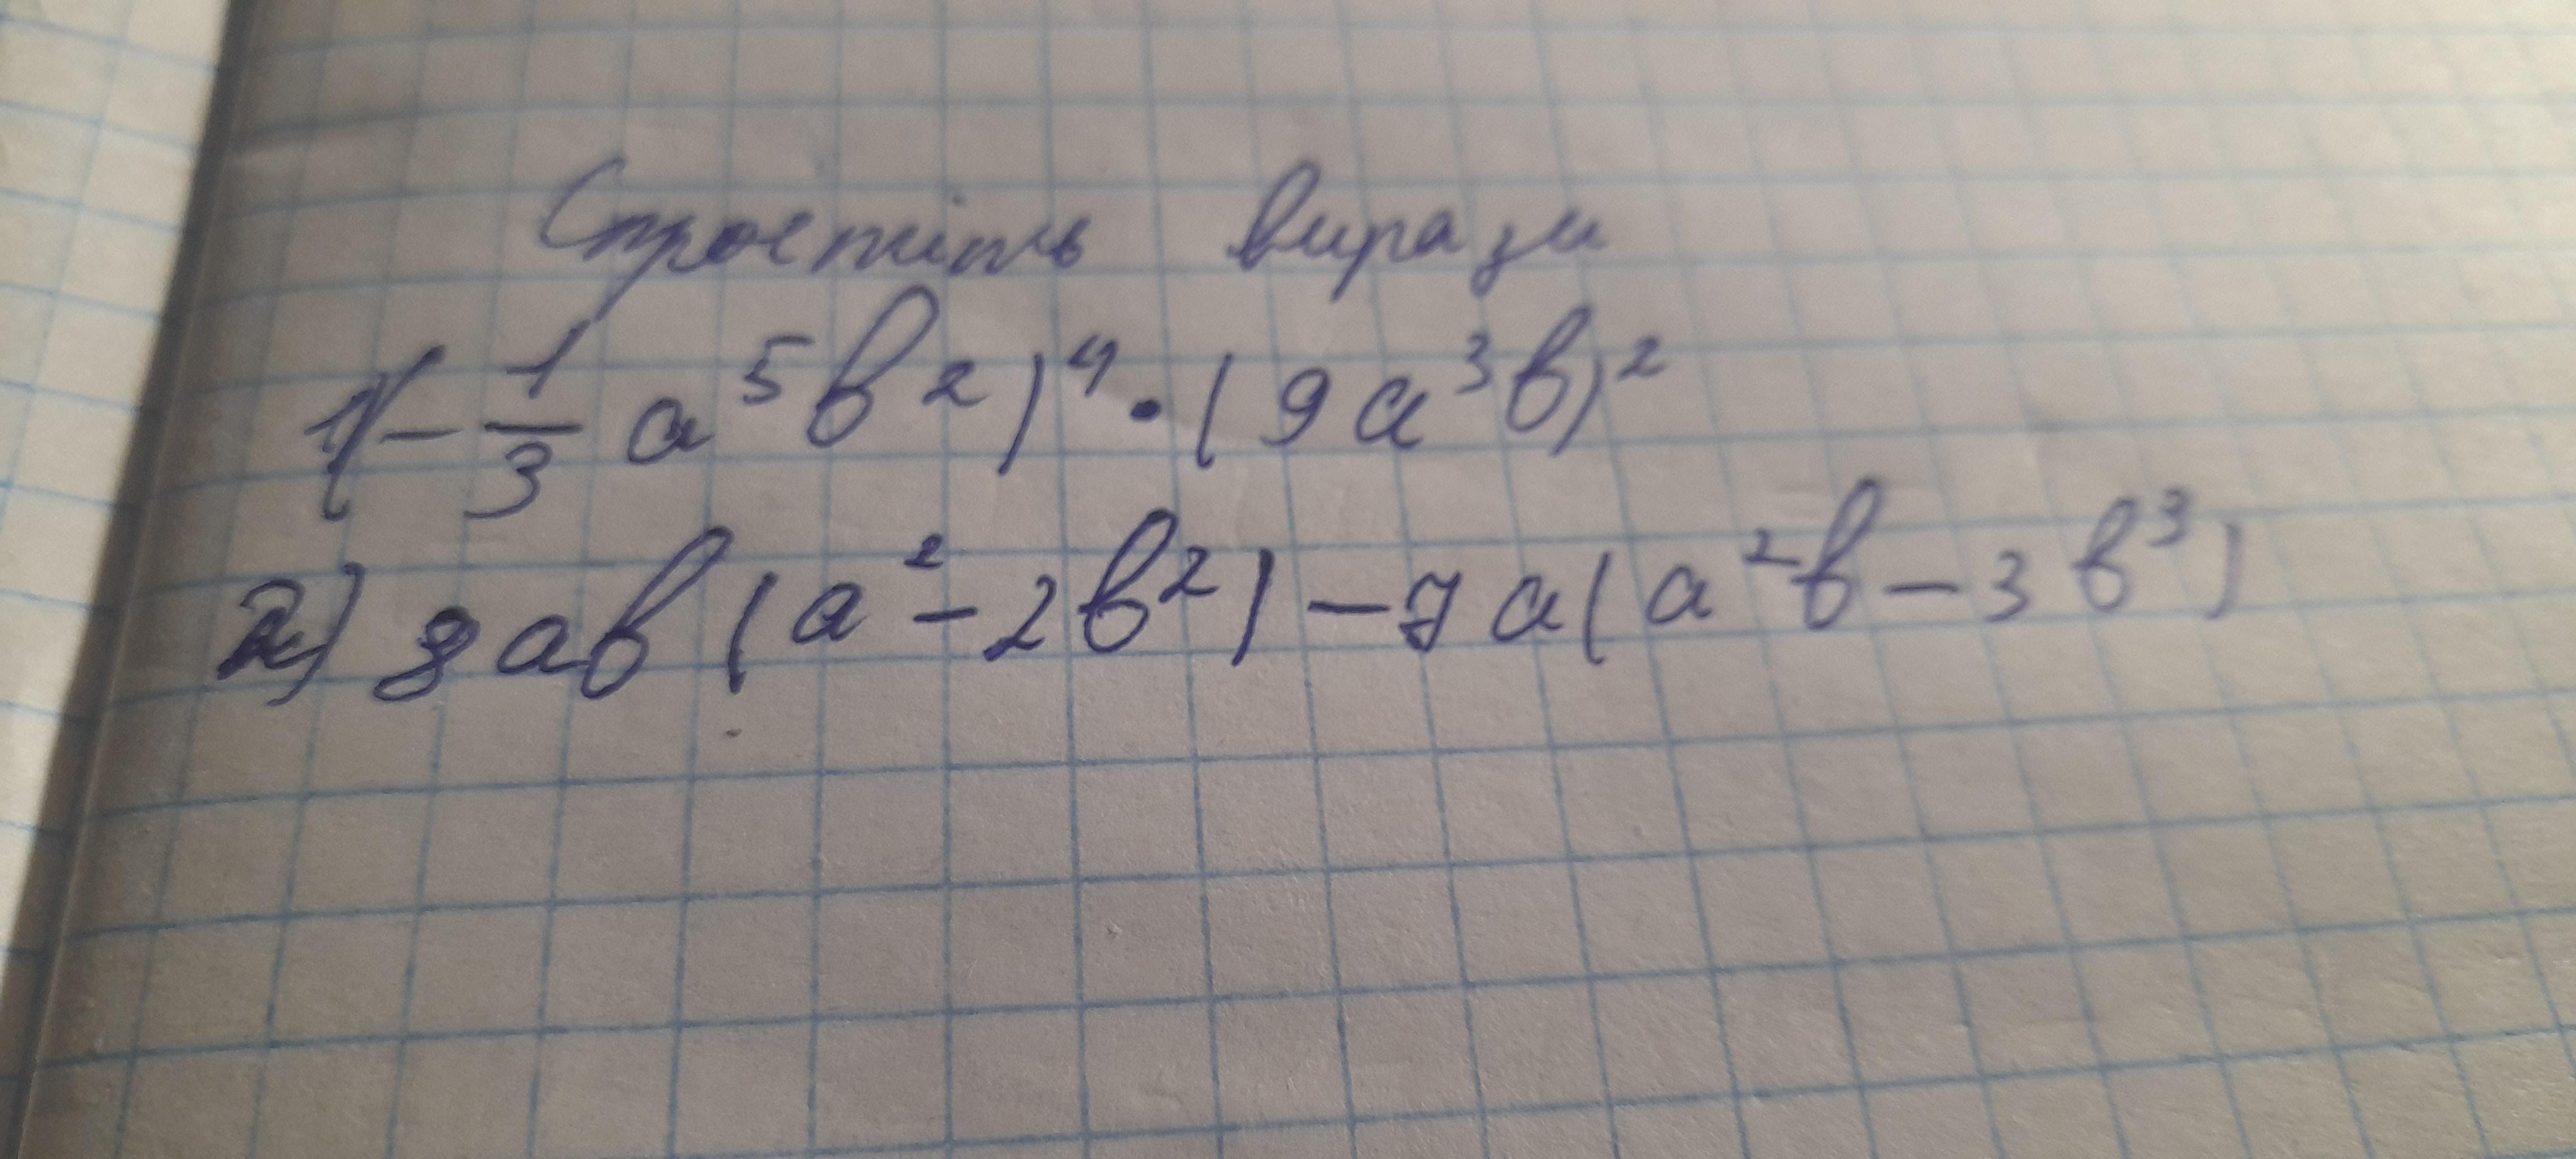 Спростіть вирази
1) (-1/3 a⁵b²)⁴ · (9a³b)²
2) 8ab(a² - 2b²) - 7a(a²b - 3b³)